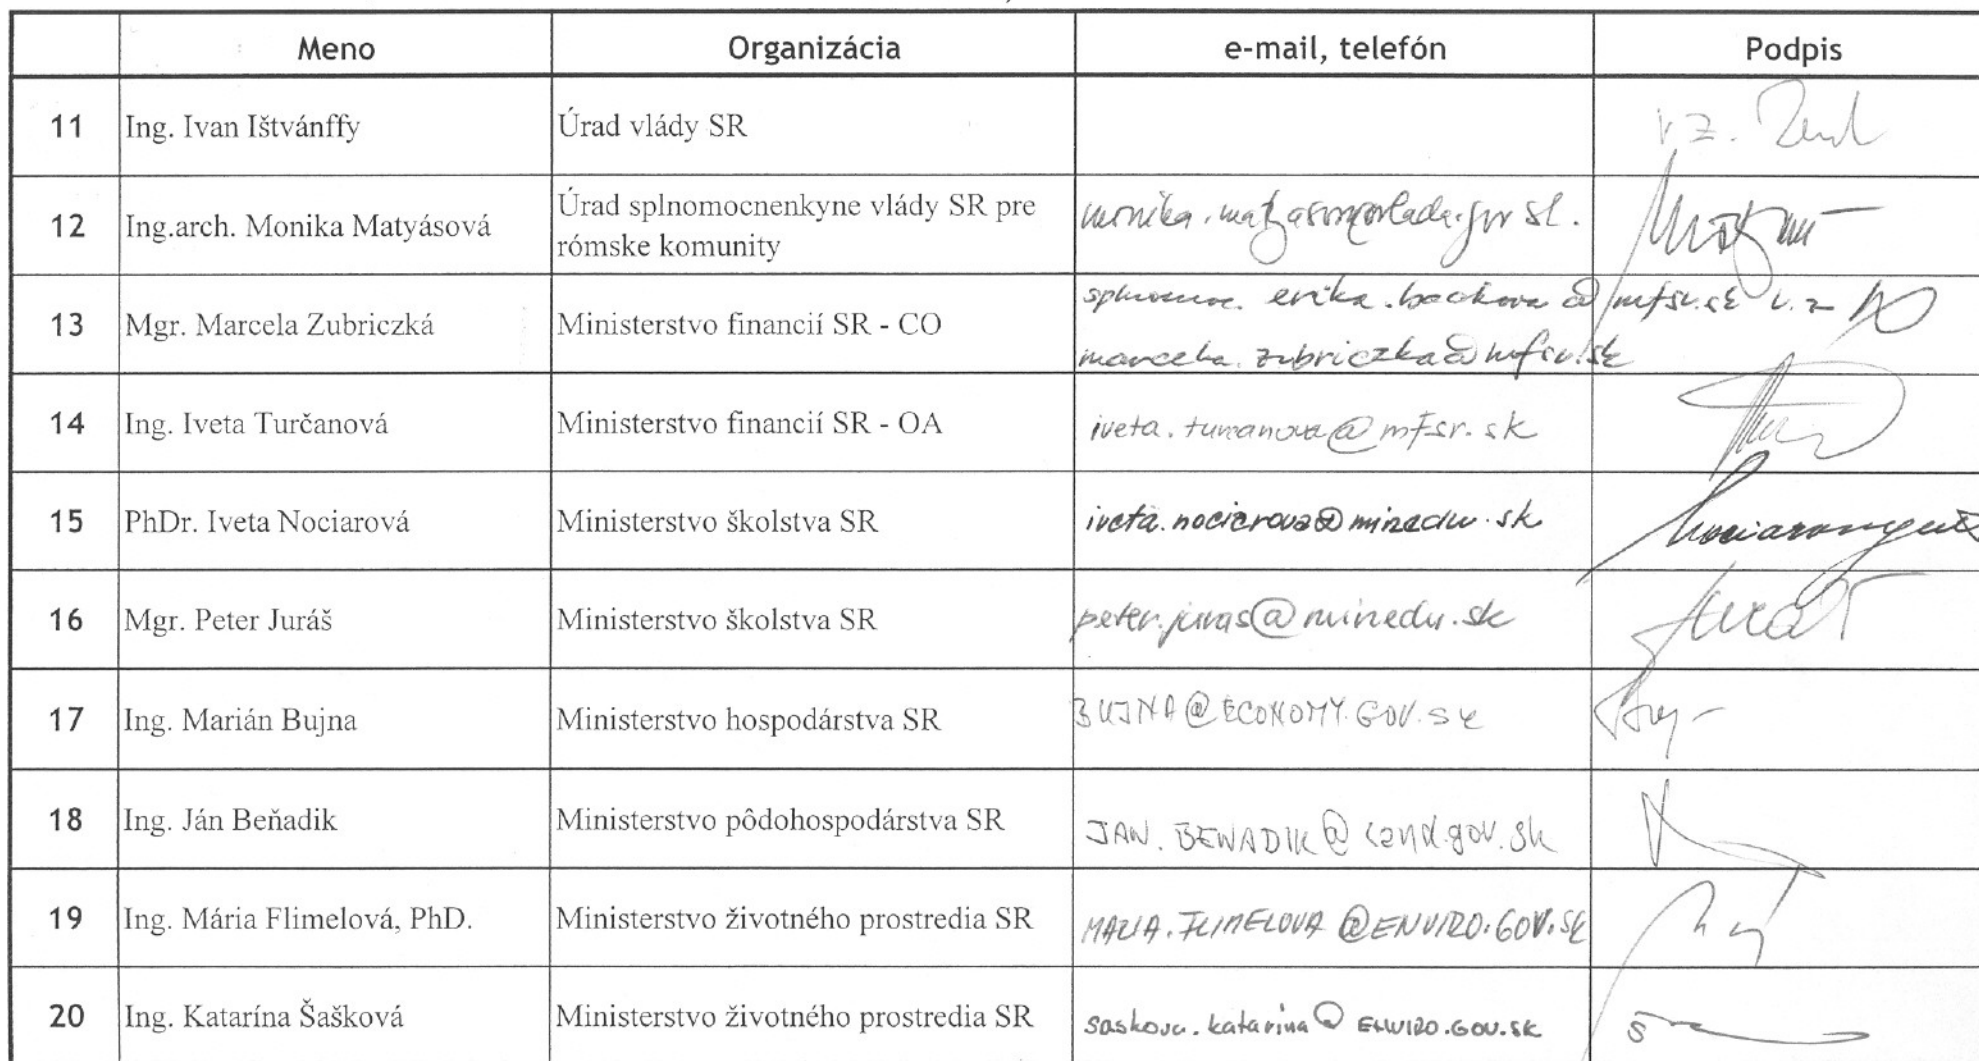 Meno Organizácia e-mail, telefón Podpis
11 Ing. Ivan Ištvánffy Úrad vlády SR v.z.
12 Ing.arch. Monika Matyásová Úrad splnomocnenkyne vlády SR pre
rómske komunity
13 Mgr. Marcela Zubriczká Ministerstvo financií SR - CO erika.backova@mfsr.sk v.z
marcela.zubriczka@mfsr.sk
14 Ing. Iveta Turčanová Ministerstvo financií SR - OA iveta.turcanova@mfsr.sk
15 PhDr. Iveta Nociarová Ministerstvo školstva SR iveta.nociarova@minedu.sk
16 Mgr. Peter Juráš Ministerstvo školstva SR peter.juras@minedu.sk
17 Ing. Marián Bujna Ministerstvo hospodárstva SR BUJNA@ECONOMY.GOV.SK
18 Ing. Ján Beňadik Ministerstvo pôdohospodárstva SR JAN.BENADIK@land.gov.sk
19 Ing. Mária Flimelová, PhD. Ministerstvo životného prostredia SR MARIA.FLIMELOVA@ENVIRO.GOV.SK
20 Ing. Katarína Šašková Ministerstvo životného prostredia SR saskova.katarina@ENVIRO.GOV.SK